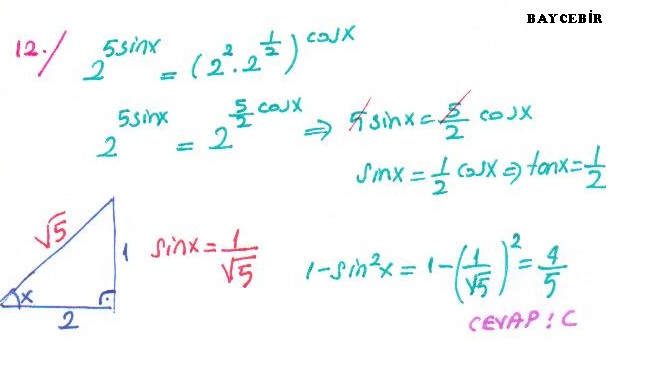 BAYCEBİR
12./ 2^{5sinx} = (2^2 . 2^{1/2})^{cosx}
2^{5sinx} = 2^{5/2 cosx} ⇒ 5sinx = 5/2 cosx
sinx = 1/2 cosx ⇒ tanx = 1/2
√5 1 x 2
sinx = 1/√5
1-sin²x = 1-(1/√5)² = 4/5
CEVAP : C